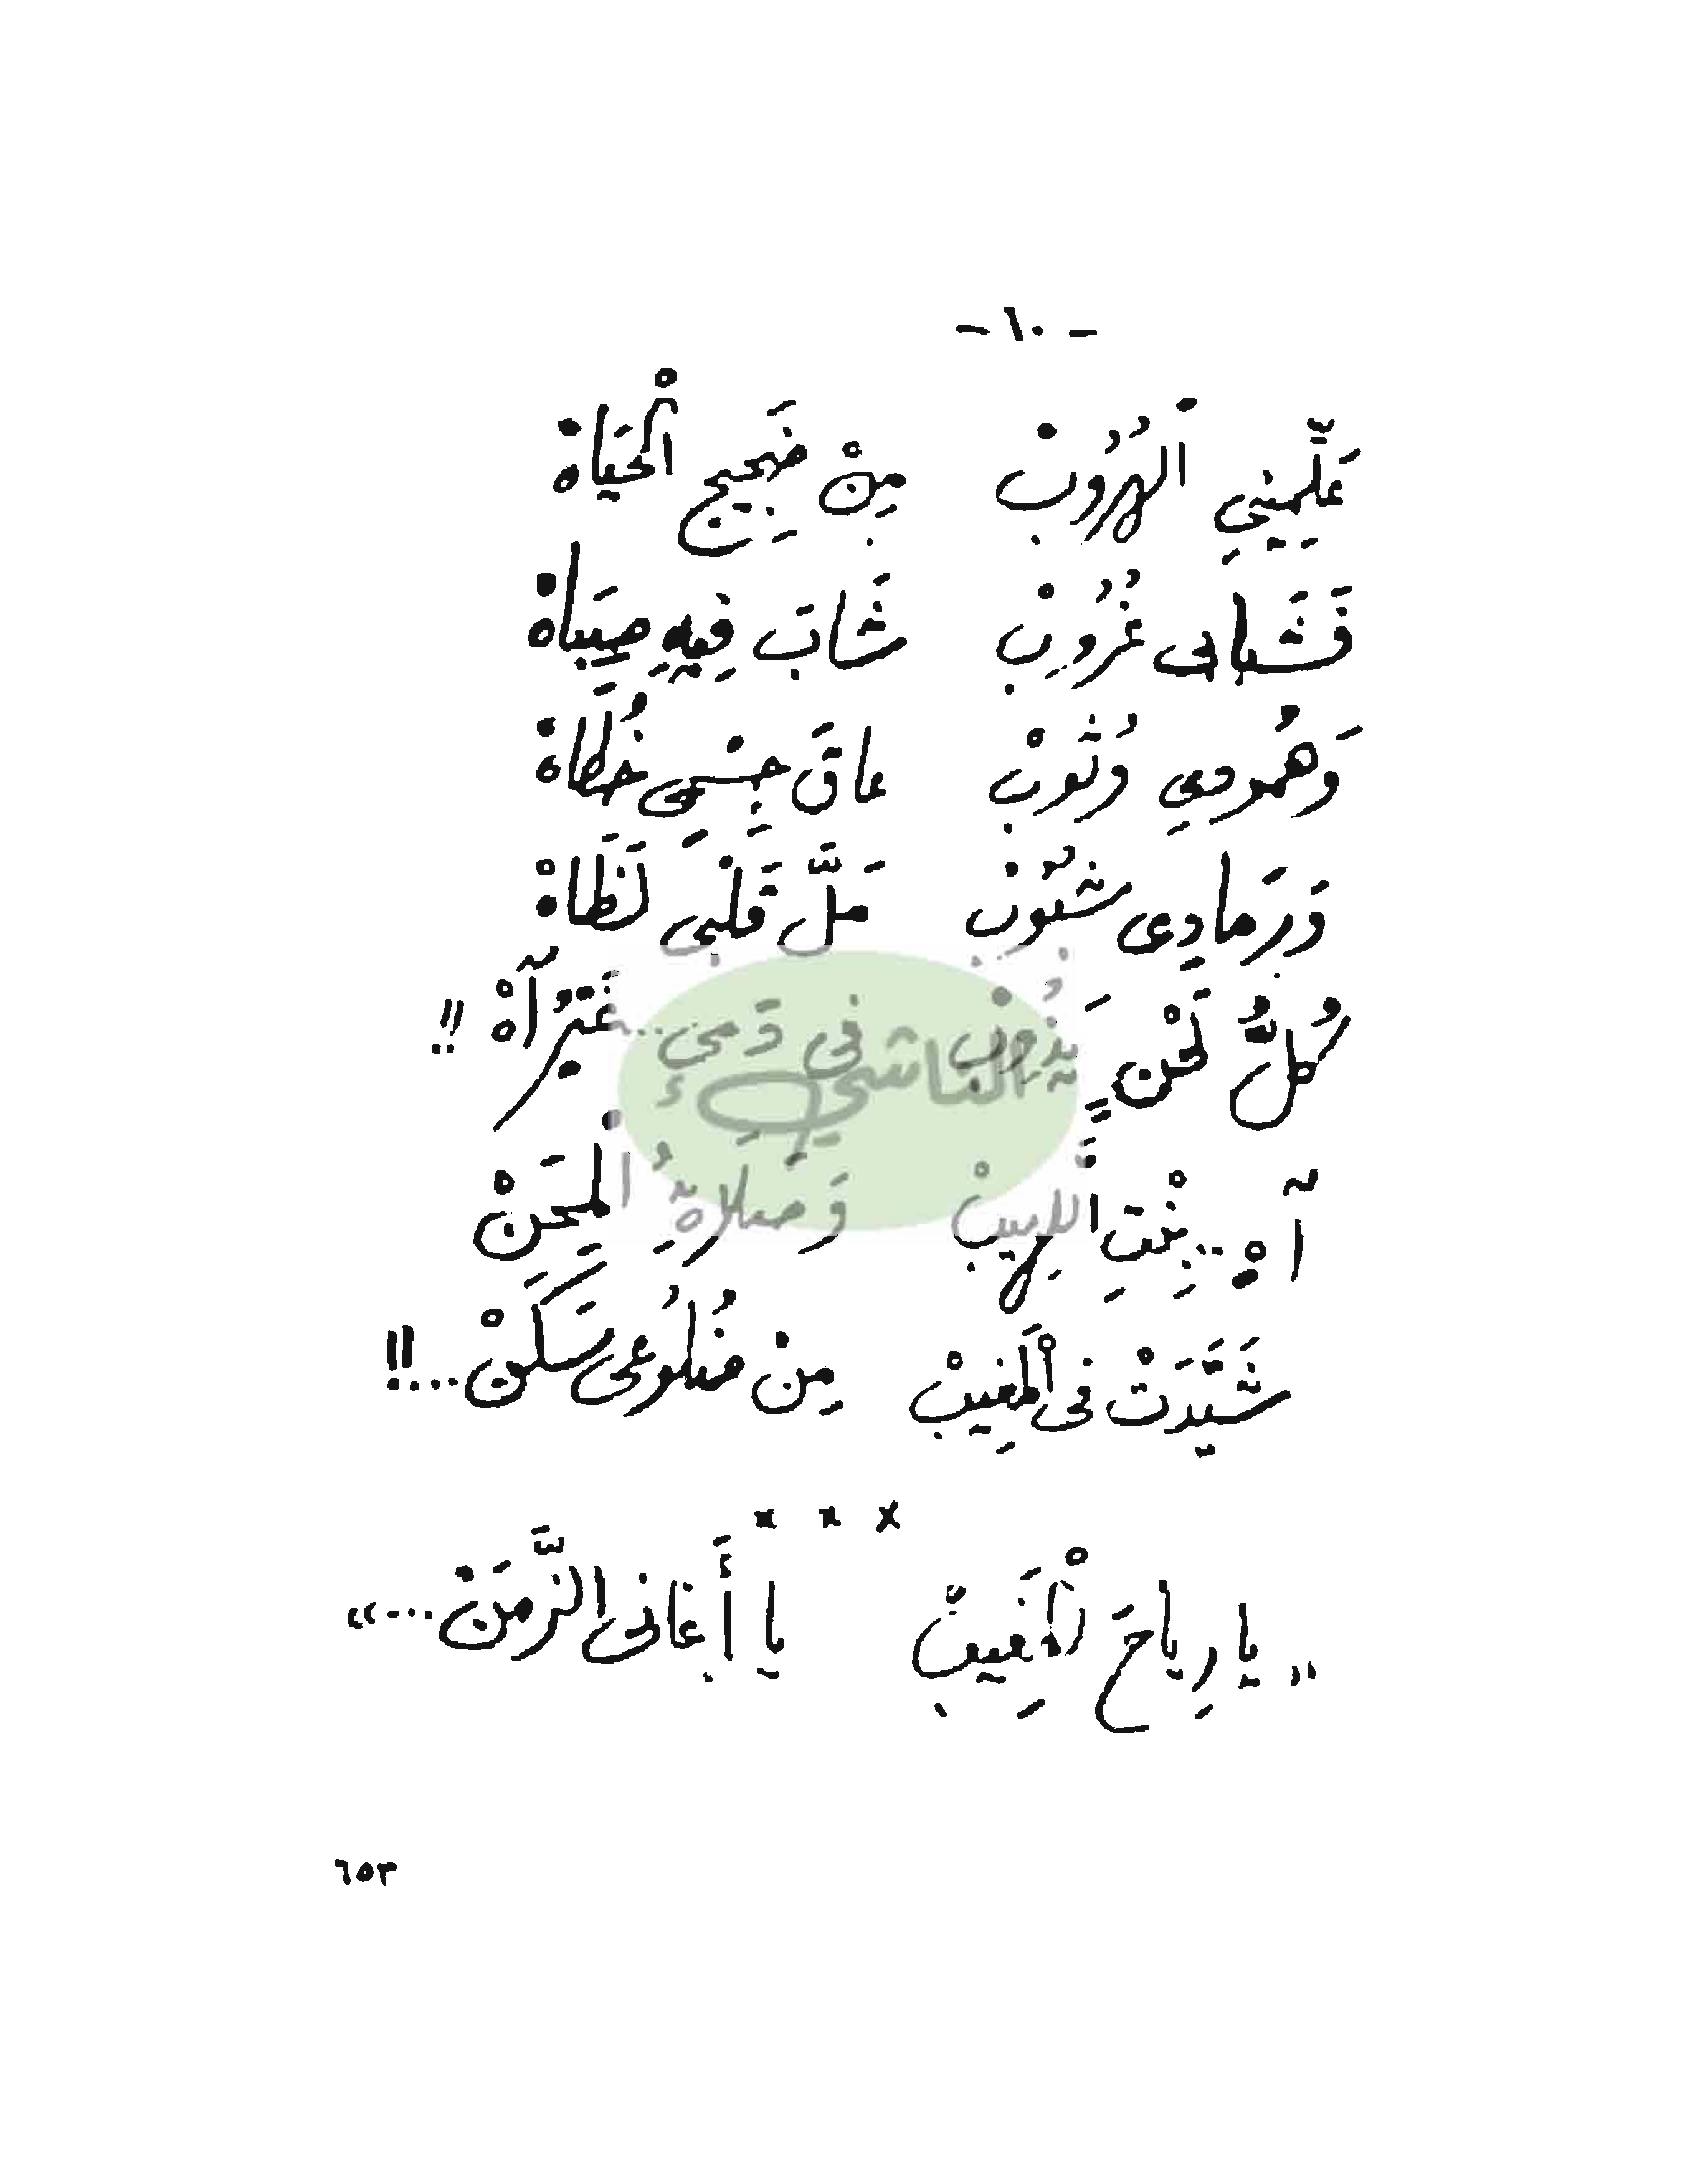 - ١٠ -
عَلِّمِينِي الْهُرُوبْ مِنْ ضَجِيجِ الْحَيَاهْ
فَشَبابى غُرُوبْ شَابَ فِيهِ صِبَاهْ
وَهُمودِي وُثُوبْ عاقَ جِسْمِى خُطَاهْ
وَرَمادِى شُبُوبْ مَلَّ قَلْبِى لَظَاهْ
كُلُّ لَحْنٍ يَذُوبْ فى دَمِى... غَيْرُ آهْ !!
آهِ... بِنْتِ اللَّهِيبْ وَصَلاةِ الْمِحَنْ
شَيَّدَتْ فى الْمَغِيبْ مِنْ ضُلُوعِى سَكَنْ...!!
× × ×
"يا رِياحَ الْمَغِيبْ يا أَغانى الزَّمَنْ..."
الناشيء
٦٥٣